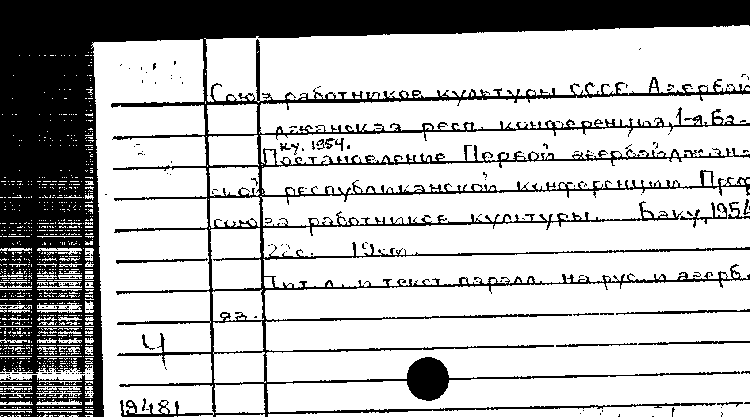 Союз работников культуры СССР. Азербай
джанская респ. конференция, 1-я. Ба-
ку. 1954.
Постановление Первой азербайджан-
ской республиканской конференции Проф
союза работников культуры. Баку, 1954
22с. 19см.
Тит. л. и текст паралл. на рус. и азерб.
яз.
Ч
19481